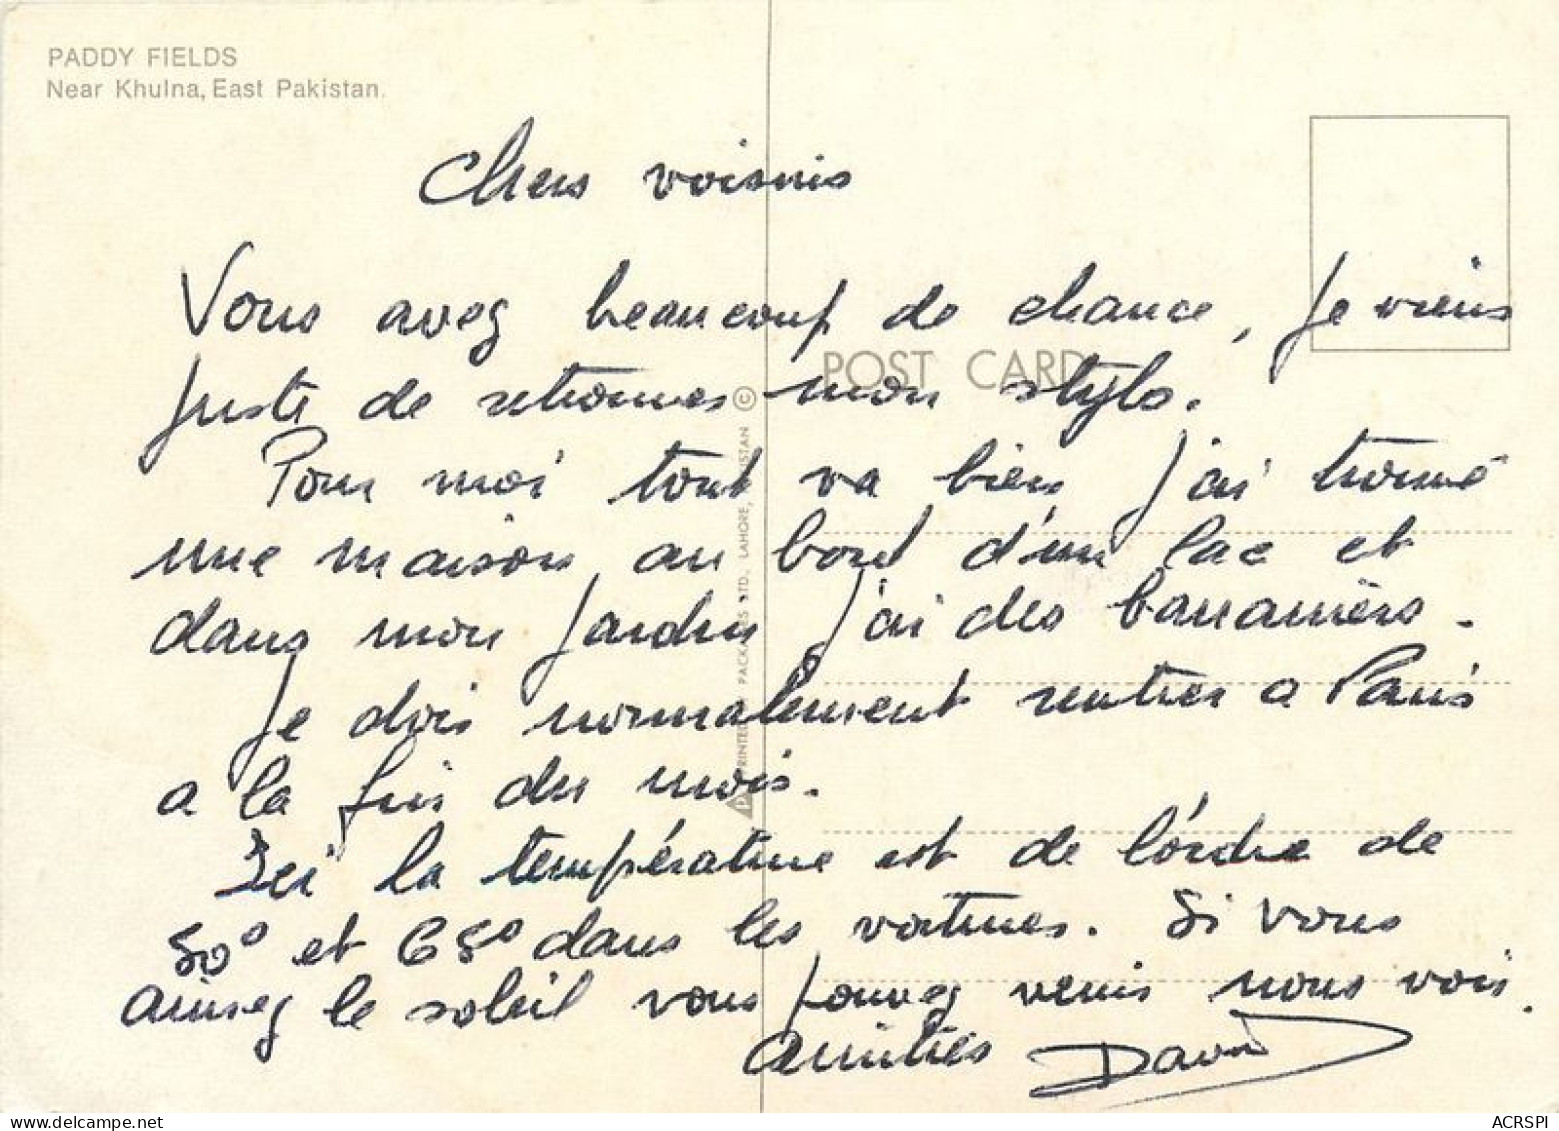 PADDY FIELDS
Near Khulna, East Pakistan.
Chers voisins
Vous avez beaucoup de chance, je viens
juste de retrouver mon stylo.
POST CARD
©
Pour moi tout va bien j'ai trouvé
une maison au bord d'un lac et
dans mon jardin j'ai des bananiers.
Je dois normalement rentrer a Paris
a la fin du mois.
Ici la température est de l'ordre de
50° et 65° dans les voitures. Si vous
aimez le soleil vous pouvez venir nous voir.
amitiés David
PRINTED PACKAGES LTD., LAHORE, PAKISTAN
ACRSPI